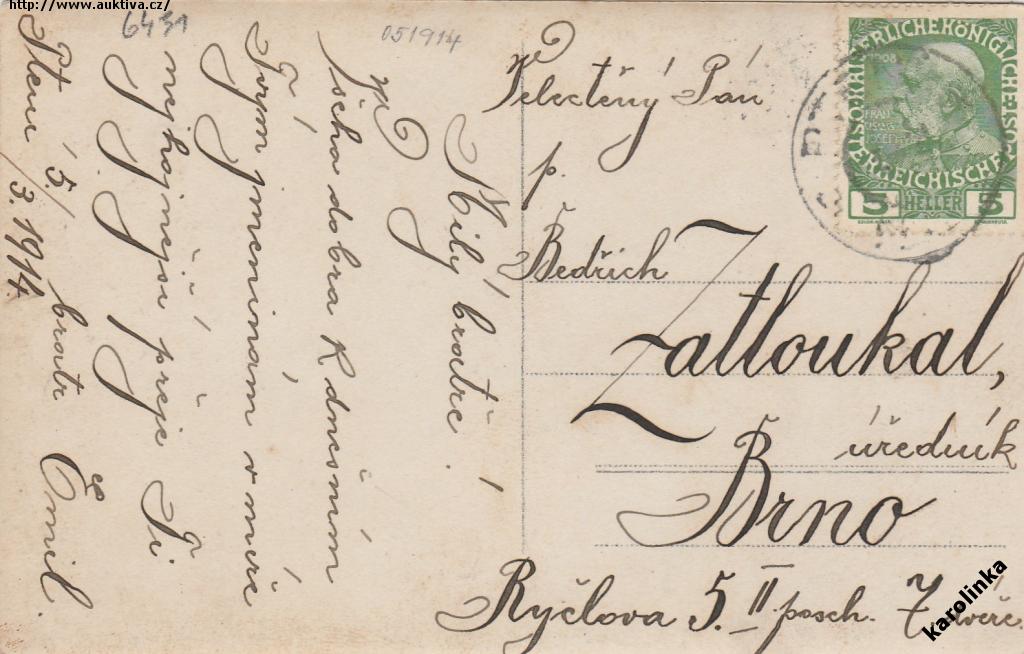 http://www.auktiva.cz/
6431
051914
Milý bratře!
Všcha dobra k dnešním
Tvým jmeninám v míře
nejhojnější přeje Ti
bratr Emil.
Šteru 15/
3. 1914
Velectěný Pán
p.
Bedřich
Zatloukal,
úředník
Brno
Ryčlova 5. II posch. 7 dvéře.
KAISERLICHE KÖNIGLICHE
ÖSTERREICHISCHE
1908
5 HELLER 5
karolinka